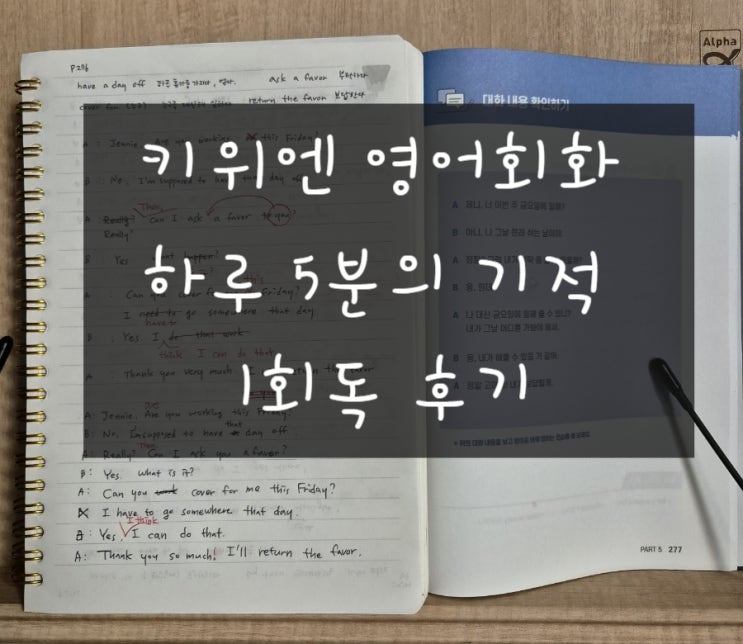 키위엔 영어회화
하루 5분의 기적
1회독 후기
Alpha
P276
have a day off
ask a favor 부탁하다
return the favor 보답하다
대화 내용 확인하기
A : Jennie, Are you working this Friday?
B : No, I'm supposed to have day off
Then,
A Really? Can I ask a favor to you?
Really?
B Yes what happen?
A : Can you cover for this Friday?
I need to go somewhere that day
have to
B : Yes I do that work
think I can do that
A : Thank you very much I return the favor
A: Jennie, Are you working this Friday?
that
B: No, I'm supposed to have day off.
Then
A: Really? Can I ask you a favor?
B: Yes. What is it?
A: Can you work cover for me this Friday?
I have to go somewhere that day.
I think
B: Yes I can do that.
A: Thank you so much! I'll return the favor.
A 제니, 너 이번 주 금요일에 일해?
B 아니, 나 그날 쉬는 날이야.
A 나 대신 금요일에 일해 줄 수 있어?
내가 그날 어디를 가봐야 해서.
B 응, 내가 해줄 수 있을 거 같아.
PART 5 277